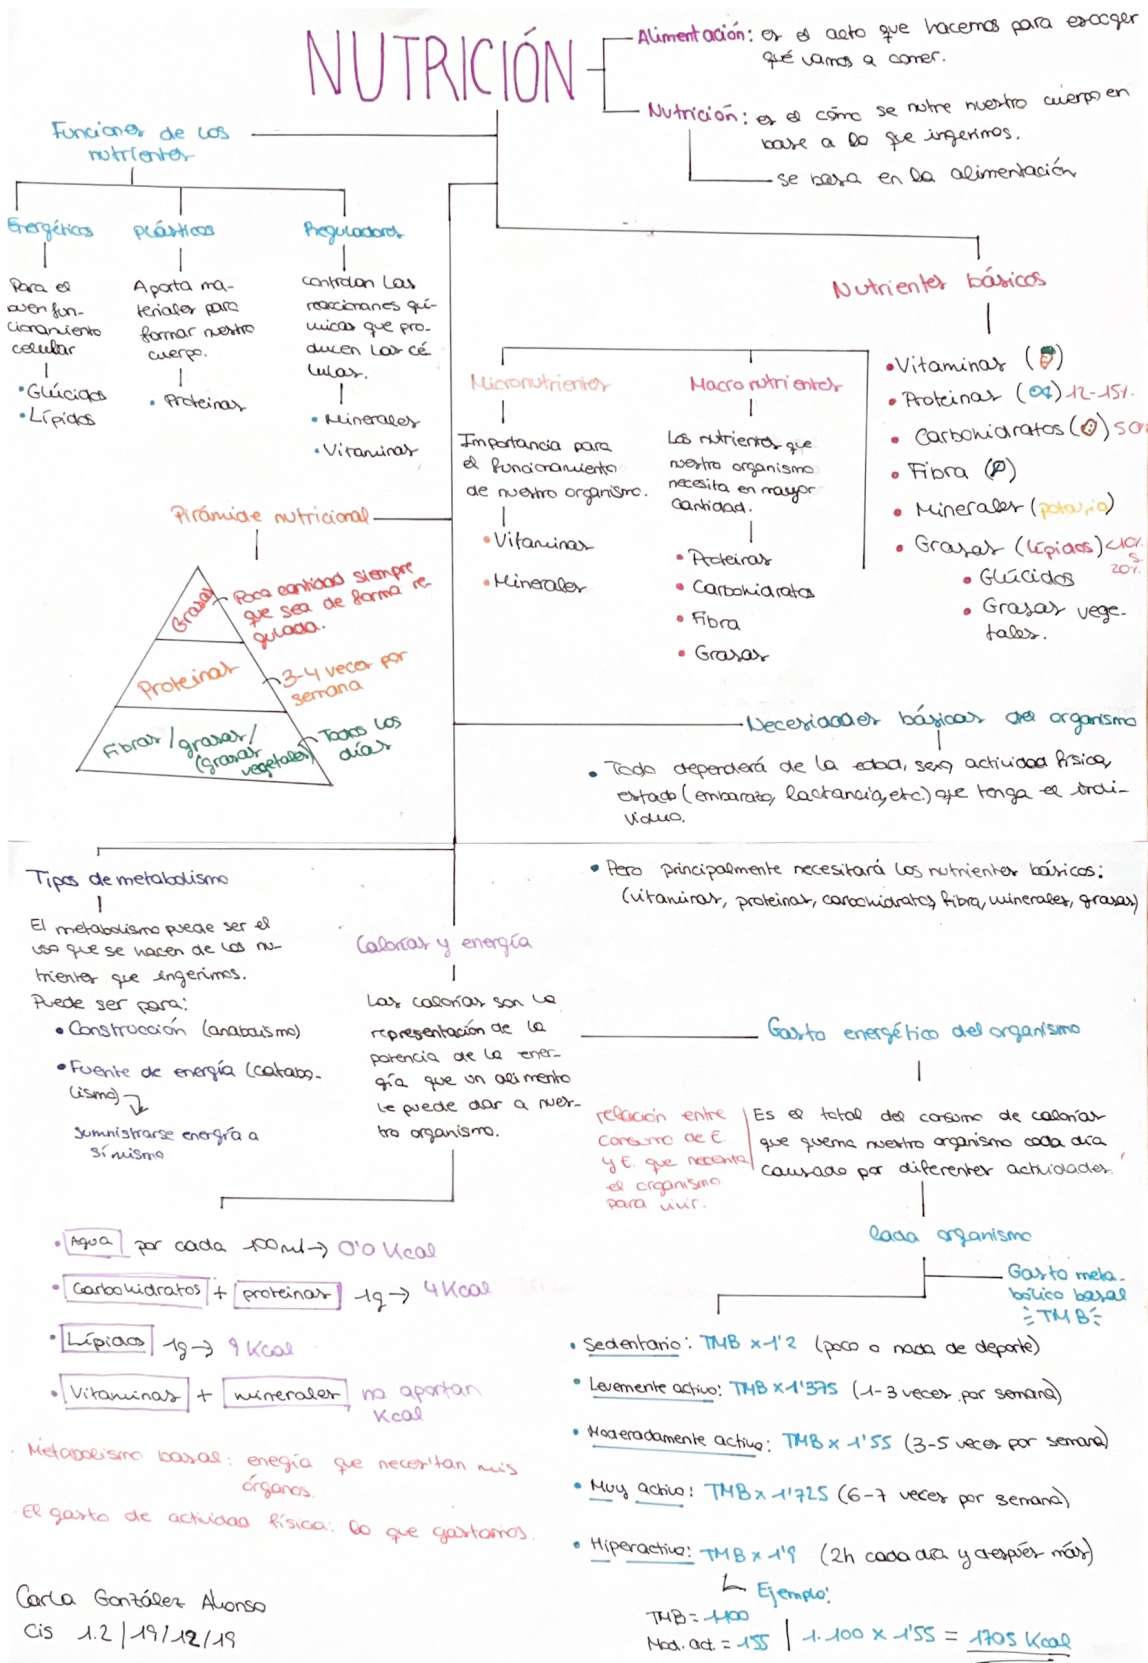 NUTRICIÓN
Alimentación: es el acto que hacemos para escoger
qué vamos a comer.
Nutrición: es el cómo se nutre nuestro cuerpo en
base a lo que ingerimos.
se basa en la alimentación
Funciones de los
nutrientes
Energéticos
Para el
buen fun-
cionamiento
celular
• Glúcidos
• Lípidos
plásticos
Aporta ma-
teriales para
formar nuestro
cuerpo.
• Proteínas
Reguladores
controlan las
reacciones quí-
micas que pro-
ducen las cé
lulas.
• Minerales
• Vitaminas
Nutrientes básicos
• Vitaminas ( )
• Proteínas ( ) 12-15%
• Carbohidratos ( ) 50
• Fibra ( )
• Minerales (potasio)
• Grasas (lípidos) <10%
20%
• Glúcidos
• Grasas vege-
tales.
Micronutrientes
Importancia para
el funcionamiento
de nuestro organismo.
• Vitaminas
• Minerales
Macronutrientes
Los nutrientes que
nuestro organismo
necesita en mayor
cantidad.
• Proteínas
• Carbohidratos
• Fibra
• Grasas
Pirámide nutricional
Grasas
Poca cantidad siempre
que sea de forma re-
gulada.
Proteínas
3-4 veces por
semana
Fibras/grasas/
(grasas
vegetales)
Todos los
días
Necesidades básicas del organismo
• Todo dependerá de la edad, sexo, actividad física,
estado (embarazo, lactancia, etc.) que tenga el indi-
viduo.
• Pero principalmente necesitará los nutrientes básicos:
(vitaminas, proteínas, carbohidratos, fibra, minerales, grasas)
Tipos de metabolismo
El metabolismo puede ser el
uso que se hacen de los nu-
trientes que ingerimos.
Puede ser para:
• Construcción (anabolismo)
• Fuente de energía (catabo-
lismo)
suministrarse energía a
sí mismo
Calorías y energía
Las calorías son la
representación de la
potencia de la ener-
gía que un alimento
le puede dar a nues-
tro organismo.
• Agua por cada 100ml → 0'0 Kcal
• Carbohidratos + proteínas 1g → 4 Kcal
• Lípidos 1g → 9 Kcal
• Vitaminas + minerales no aportan
Kcal
· Metabolismo basal: enegía que necesitan mis
órganos.
· El gasto de actividad física: lo que gastamos.
Gasto energético del organismo
relación entre
consumo de E.
y E. que necesita
el organismo
para vivir.
Es el total del consumo de calorías
que quema nuestro organismo cada día
causado por diferentes actividades.
Cada organismo
Gasto meta-
bólico basal
TMB
• Sedentario: TMB x 1'2 (poco o nada de deporte)
• Levemente activo: TMB x 1'375 (1-3 veces por semana)
• Moderadamente activo: TMB x 1'55 (3-5 veces por semana)
• Muy activo: TMB x 1'725 (6-7 veces por semana)
• Hiperactivo: TMB x 1'9 (2h cada día y después más)
Ejemplo:
TMB = 1100
Mod. act. = 1'55 | 1.100 x 1'55 = 1705 Kcal
Carla González Alonso
Cis 1.2 | 19/12/19